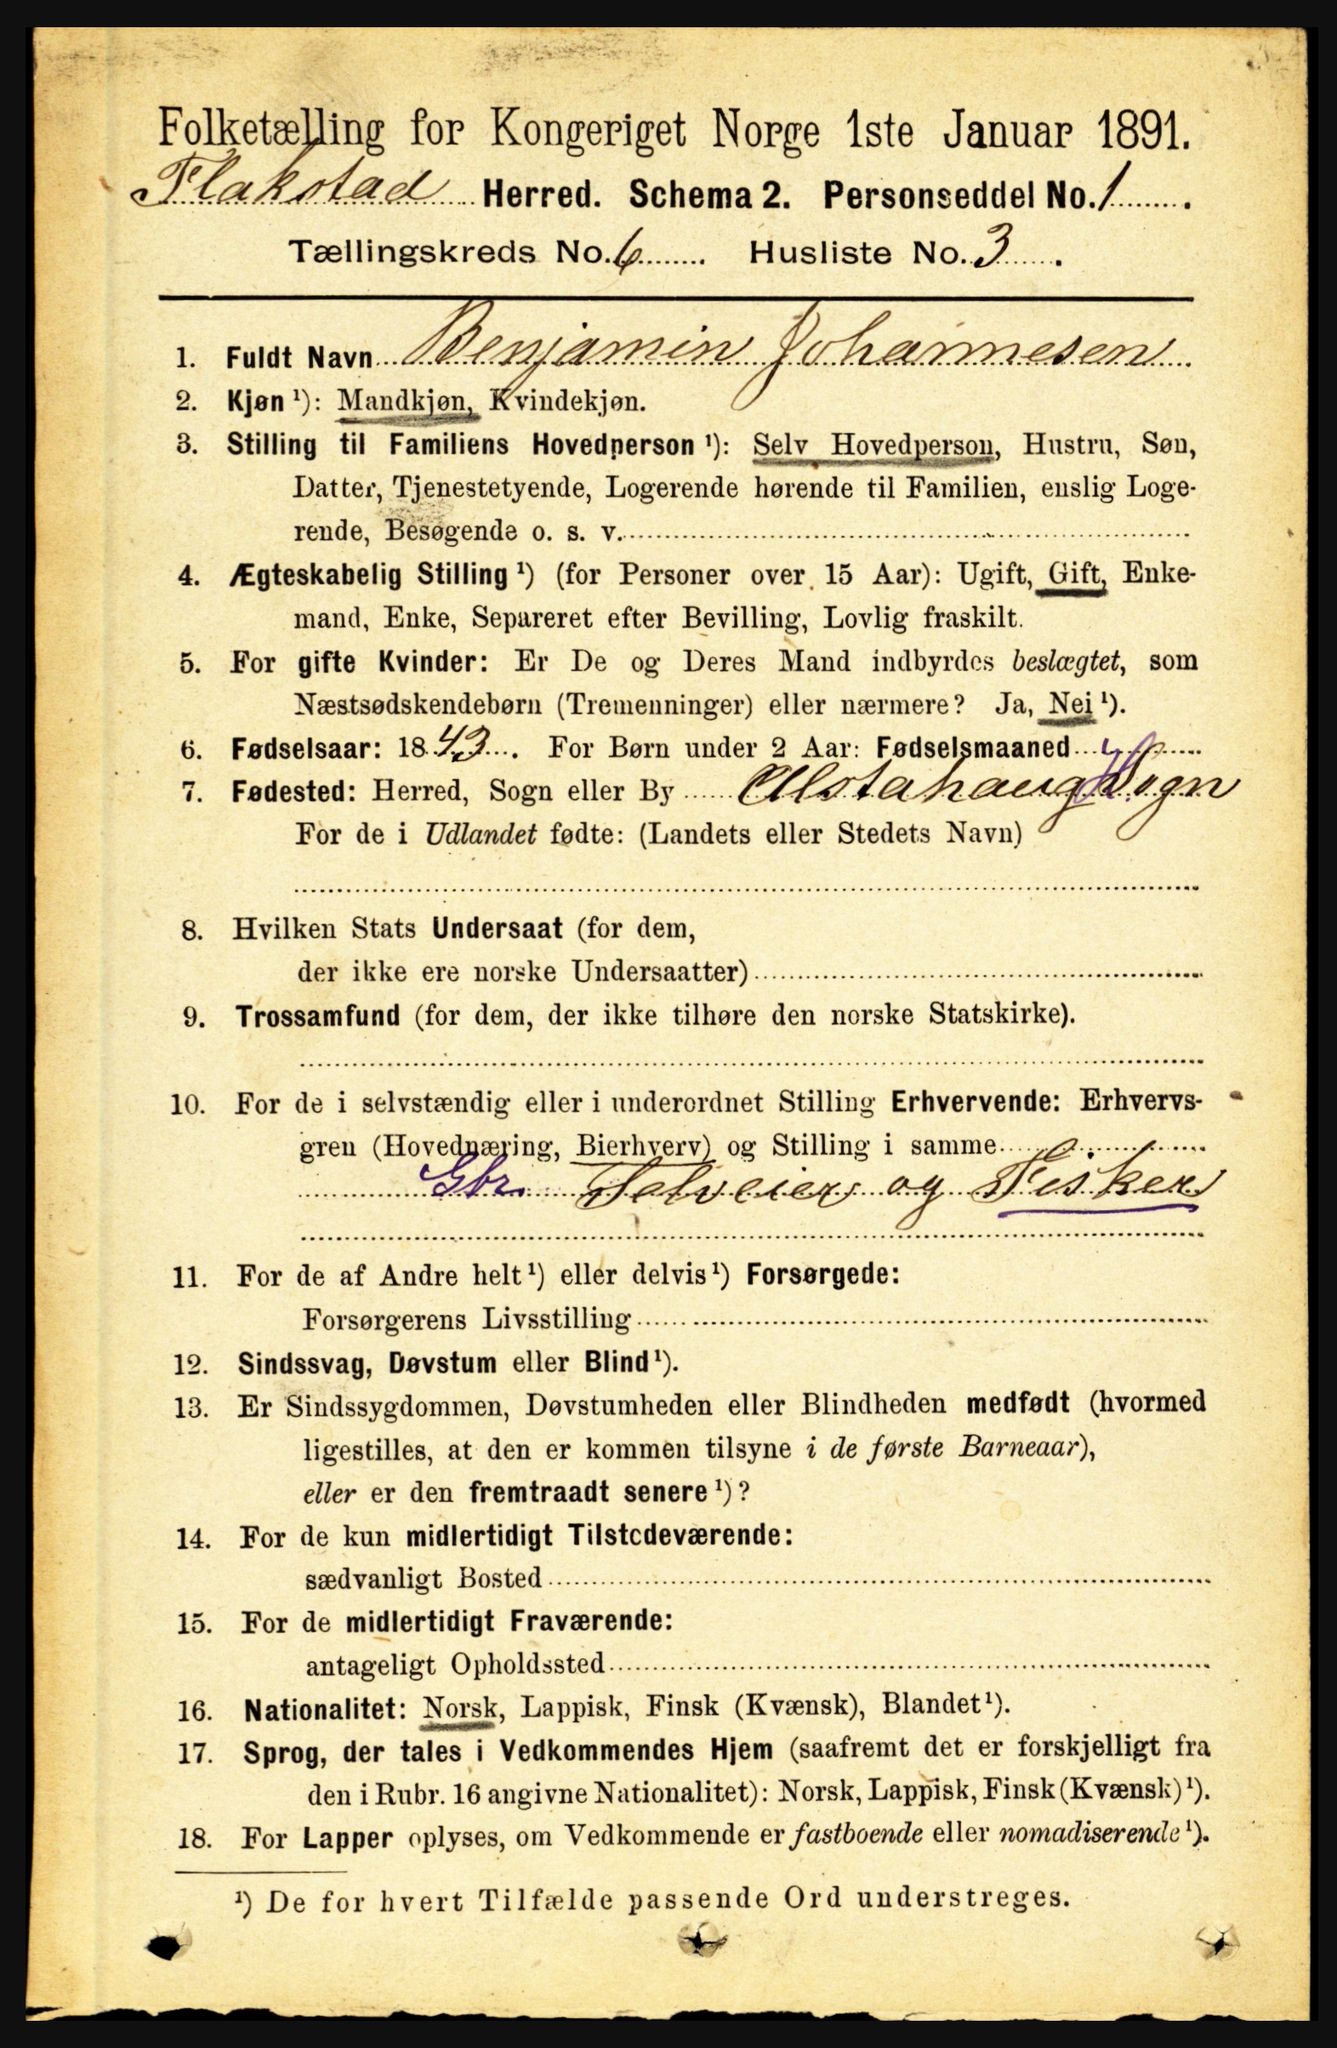 Folketælling for Kongeriget Norge 1ste Januar 1891.
Flakstad Herred. Schema 2. Personseddel No. 1.
Tællingskreds No. 6. Husliste No. 3.
1. Fuldt Navn Benjamin Johannesen
2. Kjøn ¹): Mandkjøn, Kvindekjøn.
3. Stilling til Familiens Hovedperson ¹): Selv Hovedperson, Hustru, Søn,
Datter, Tjenestetyende, Logerende hørende til Familien, enslig Loge-
rende, Besøgende o. s. v.
4. Ægteskabelig Stilling ¹) (for Personer over 15 Aar): Ugift, Gift, Enke-
mand, Enke, Separeret efter Bevilling, Lovlig fraskilt.
5. For gifte Kvinder: Er De og Deres Mand indbyrdes beslægtet, som
Næstsødskendebørn (Tremenninger) eller nærmere? Ja, Nei ¹).
6. Fødselsaar: 1843. For Børn under 2 Aar: Fødselsmaaned
7. Fødested: Herred, Sogn eller By Alstahaug Sogn
For de i Udlandet fødte: (Landets eller Stedets Navn)
8. Hvilken Stats Undersaat (for dem,
der ikke ere norske Undersaatter)
9. Trossamfund (for dem, der ikke tilhøre den norske Statskirke).
10. For de i selvstændig eller i underordnet Stilling Erhvervende: Erhvervs-
gren (Hovednæring, Bierhverv) og Stilling i samme
Gbr. Selveier og Fisker
11. For de af Andre helt ¹) eller delvis ¹) Forsørgede:
Forsørgerens Livsstilling
12. Sindssvag, Døvstum eller Blind ¹).
13. Er Sindssygdommen, Døvstumheden eller Blindheden medfødt (hvormed
ligestilles, at den er kommen tilsyne i de første Barneaar),
eller er den fremtraadt senere ¹)?
14. For de kun midlertidigt Tilstedeværende:
sædvanligt Bosted
15. For de midlertidigt Fraværende:
antageligt Opholdssted
16. Nationalitet: Norsk, Lappisk, Finsk (Kvænsk), Blandet ¹).
17. Sprog, der tales i Vedkommendes Hjem (saafremt det er forskjelligt fra
den i Rubr. 16 angivne Nationalitet): Norsk, Lappisk, Finsk (Kvænsk) ¹).
18. For Lapper oplyses, om Vedkommende er fastboende eller nomadiserende ¹).
¹) De for hvert Tilfælde passende Ord understreges.